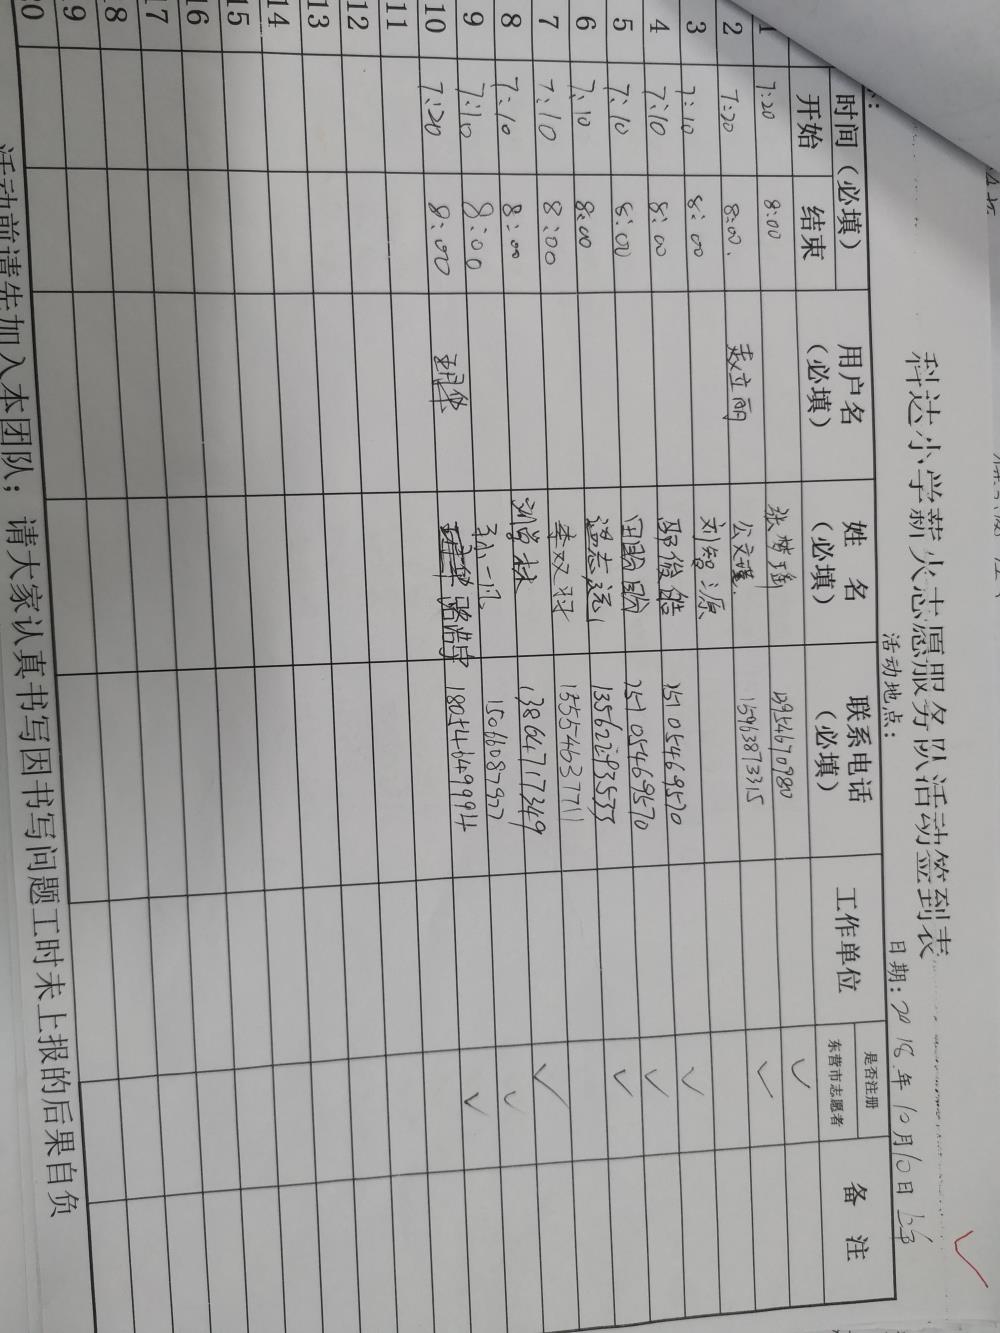 科达小学薪火志愿服务队活动签到表
活动地点： 日期：2018年10月10日
时间（必填） 用户名（必填） 姓 名（必填） 联系电话（必填） 工作单位 是否注册东营市志愿者 备 注
开始 结束
1 7:20 8:00 张梦瑶 ✓
2 7:20 8:00. 袁立丽 公文瑾. 15963873315 ✓
3 7:10 8:00 刘智源
4 7:10 8:00 郭俊皓 25105469570 ✓
5 7:10 8:00 田盼盼 25105469570 ✓
6 7:10 8:00 温志远 13562293533 ✓
7 7:10 8:00 李双羽 13554637711
8 7:10 8:00 刘学林 13864717349 ✓
9 7:10 8:00 孙一凡 15066087977 ✓
10 7:20 8:00 路浩宇 18054649994 ✓
11
12
13
14
15
16
17
18
19
20
活动前请先加入本团队；请大家认真书写因书写问题工时未上报的后果自负